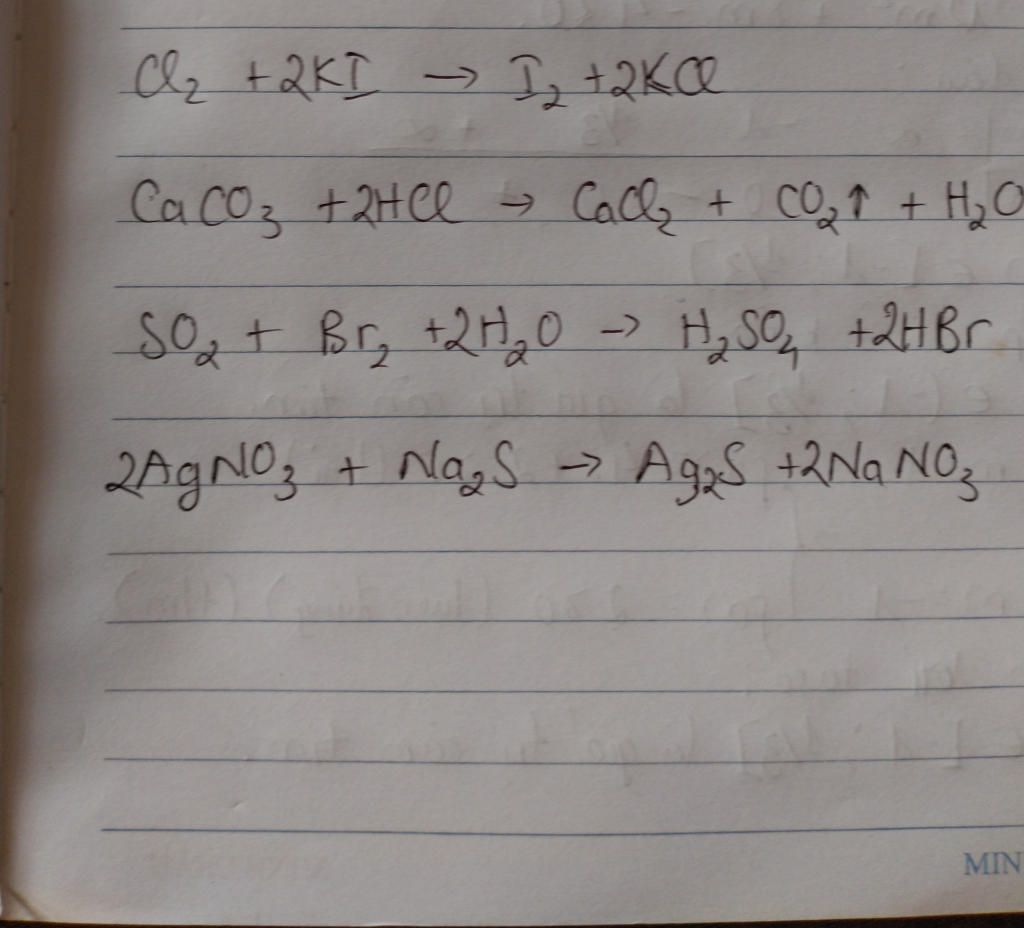 Cl₂ +2KI → I₂ +2KCl
CaCO₃ +2HCl → CaCl₂ + CO₂↑ + H₂O
SO₂ + Br₂ +2H₂O → H₂SO₄ +2HBr
2AgNO₃ + Na₂S → Ag₂S +2NaNO₃
MIN